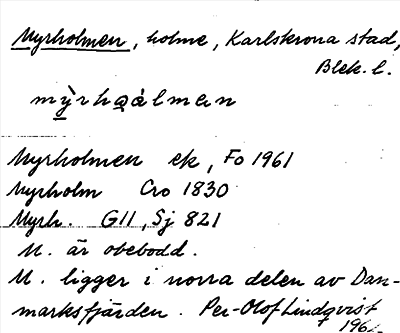 Myrholmen, holme, Karlskrona stad,
Blek. l.
mỳrhɑålmen
Myrholmen ek, Fo 1961
Myrholm Cro 1830
Myrh. G11, Sj 821
M. är obebodd.
M. ligger i norra delen av Dan-
marksfjärden. Per-Olof Lindqvist